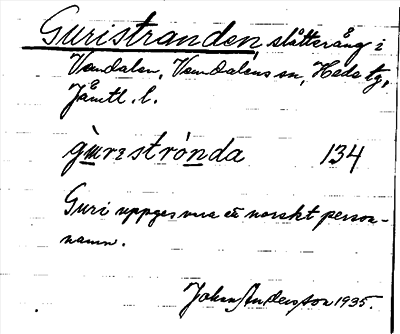 Guristranden, slåtteräng i
Vemdalen, Vemdalens sn, Hede tg,
Jämtl. l.
gùriströ̀nda 134
Guri uppges vara ett norskt person-
namn.
Johan Andersson 1935.